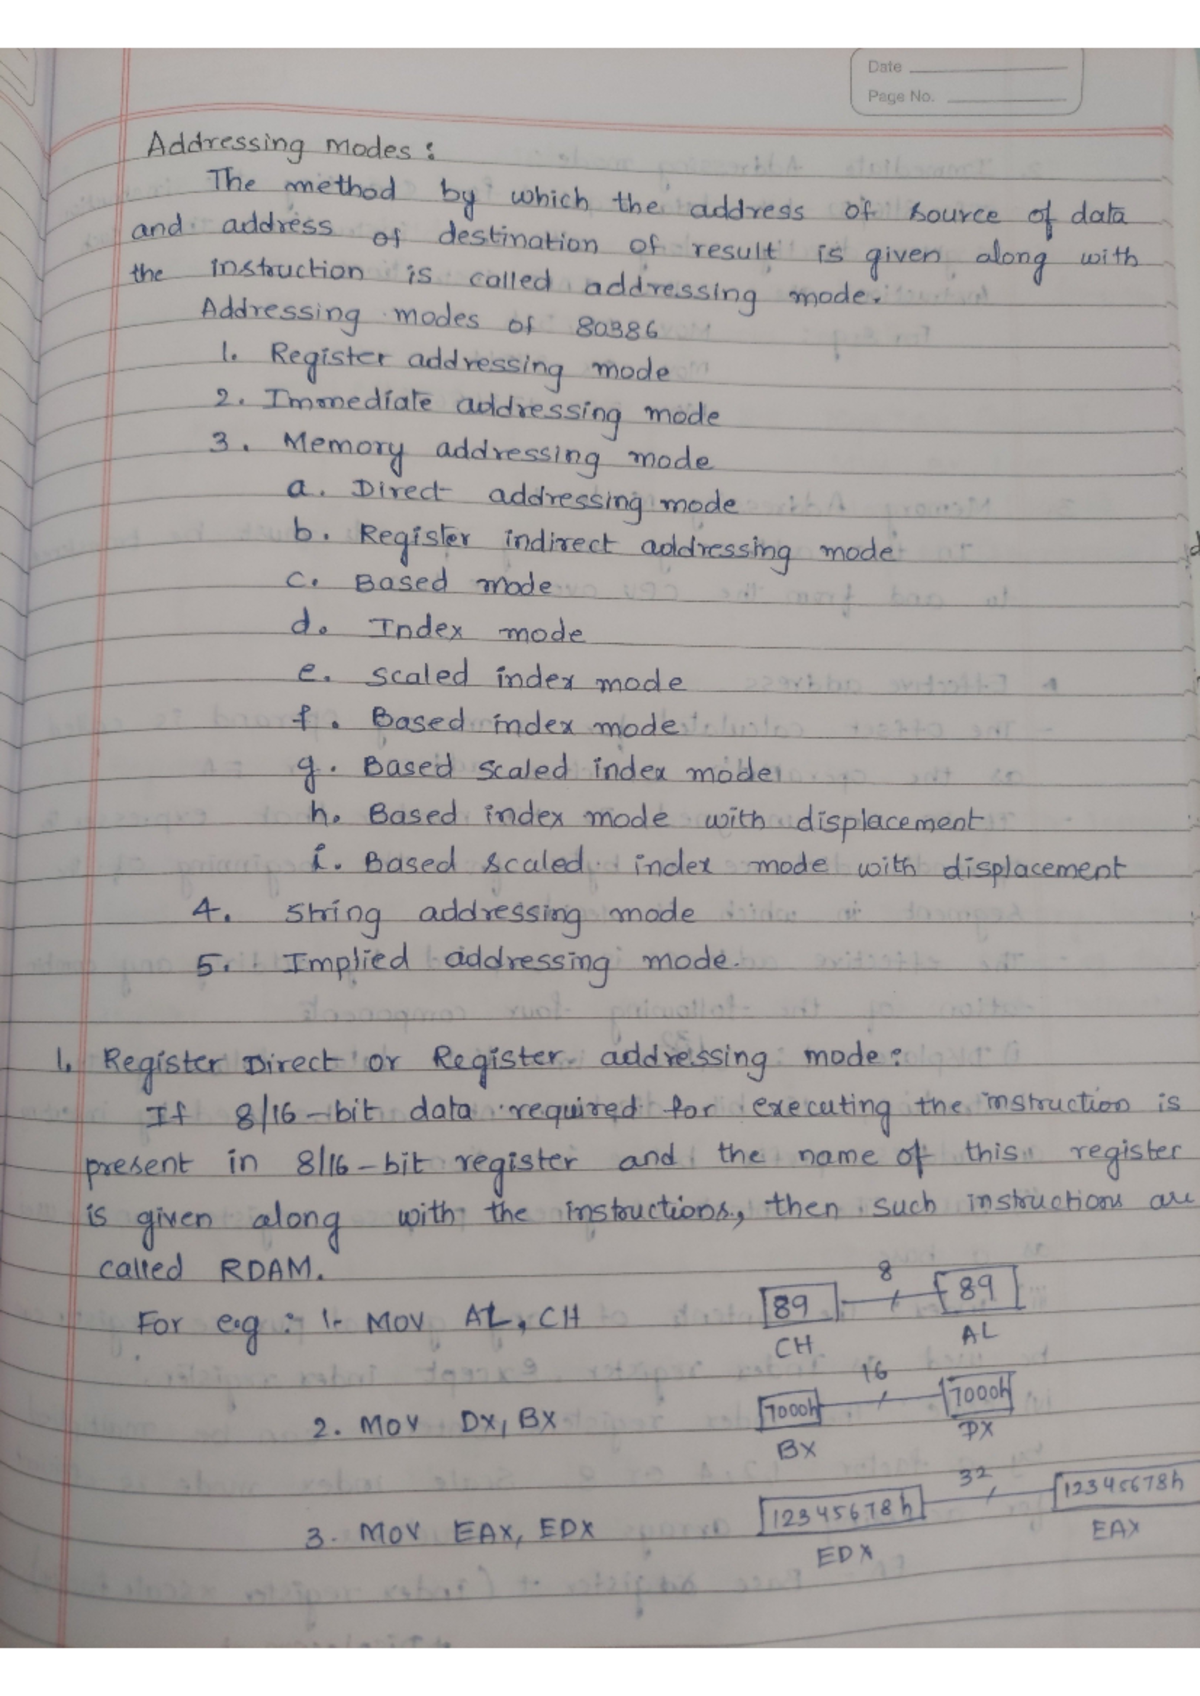 Date
Page No.
Addressing modes :
The method by which the address of source of data
and address of destination of result is given along with
the instruction is called addressing mode.
Addressing modes of 80386
1. Register addressing mode
2. Immediate addressing mode
3. Memory addressing mode
a. Direct addressing mode
b. Register indirect addressing mode
c. Based mode
d. Index mode
e. scaled index mode
f. Based index mode
g. Based scaled index mode
h. Based index mode with displacement
i. Based scaled index mode with displacement
4. string addressing mode
5. Implied addressing mode.
1. Register Direct or Register addressing mode :
If 8/16-bit data required for executing the instruction is
present in 8/16-bit register and the name of this register
is given along with the instructions, then such instructions are
called RDAM.
For e.g : 1- MOV AL, CH
89 8 89
CH AL
2. MOV DX, BX
7000h 16 7000h
BX DX
3. MOV EAX, EDX
12345678h 32 12345678h
EDX EAX